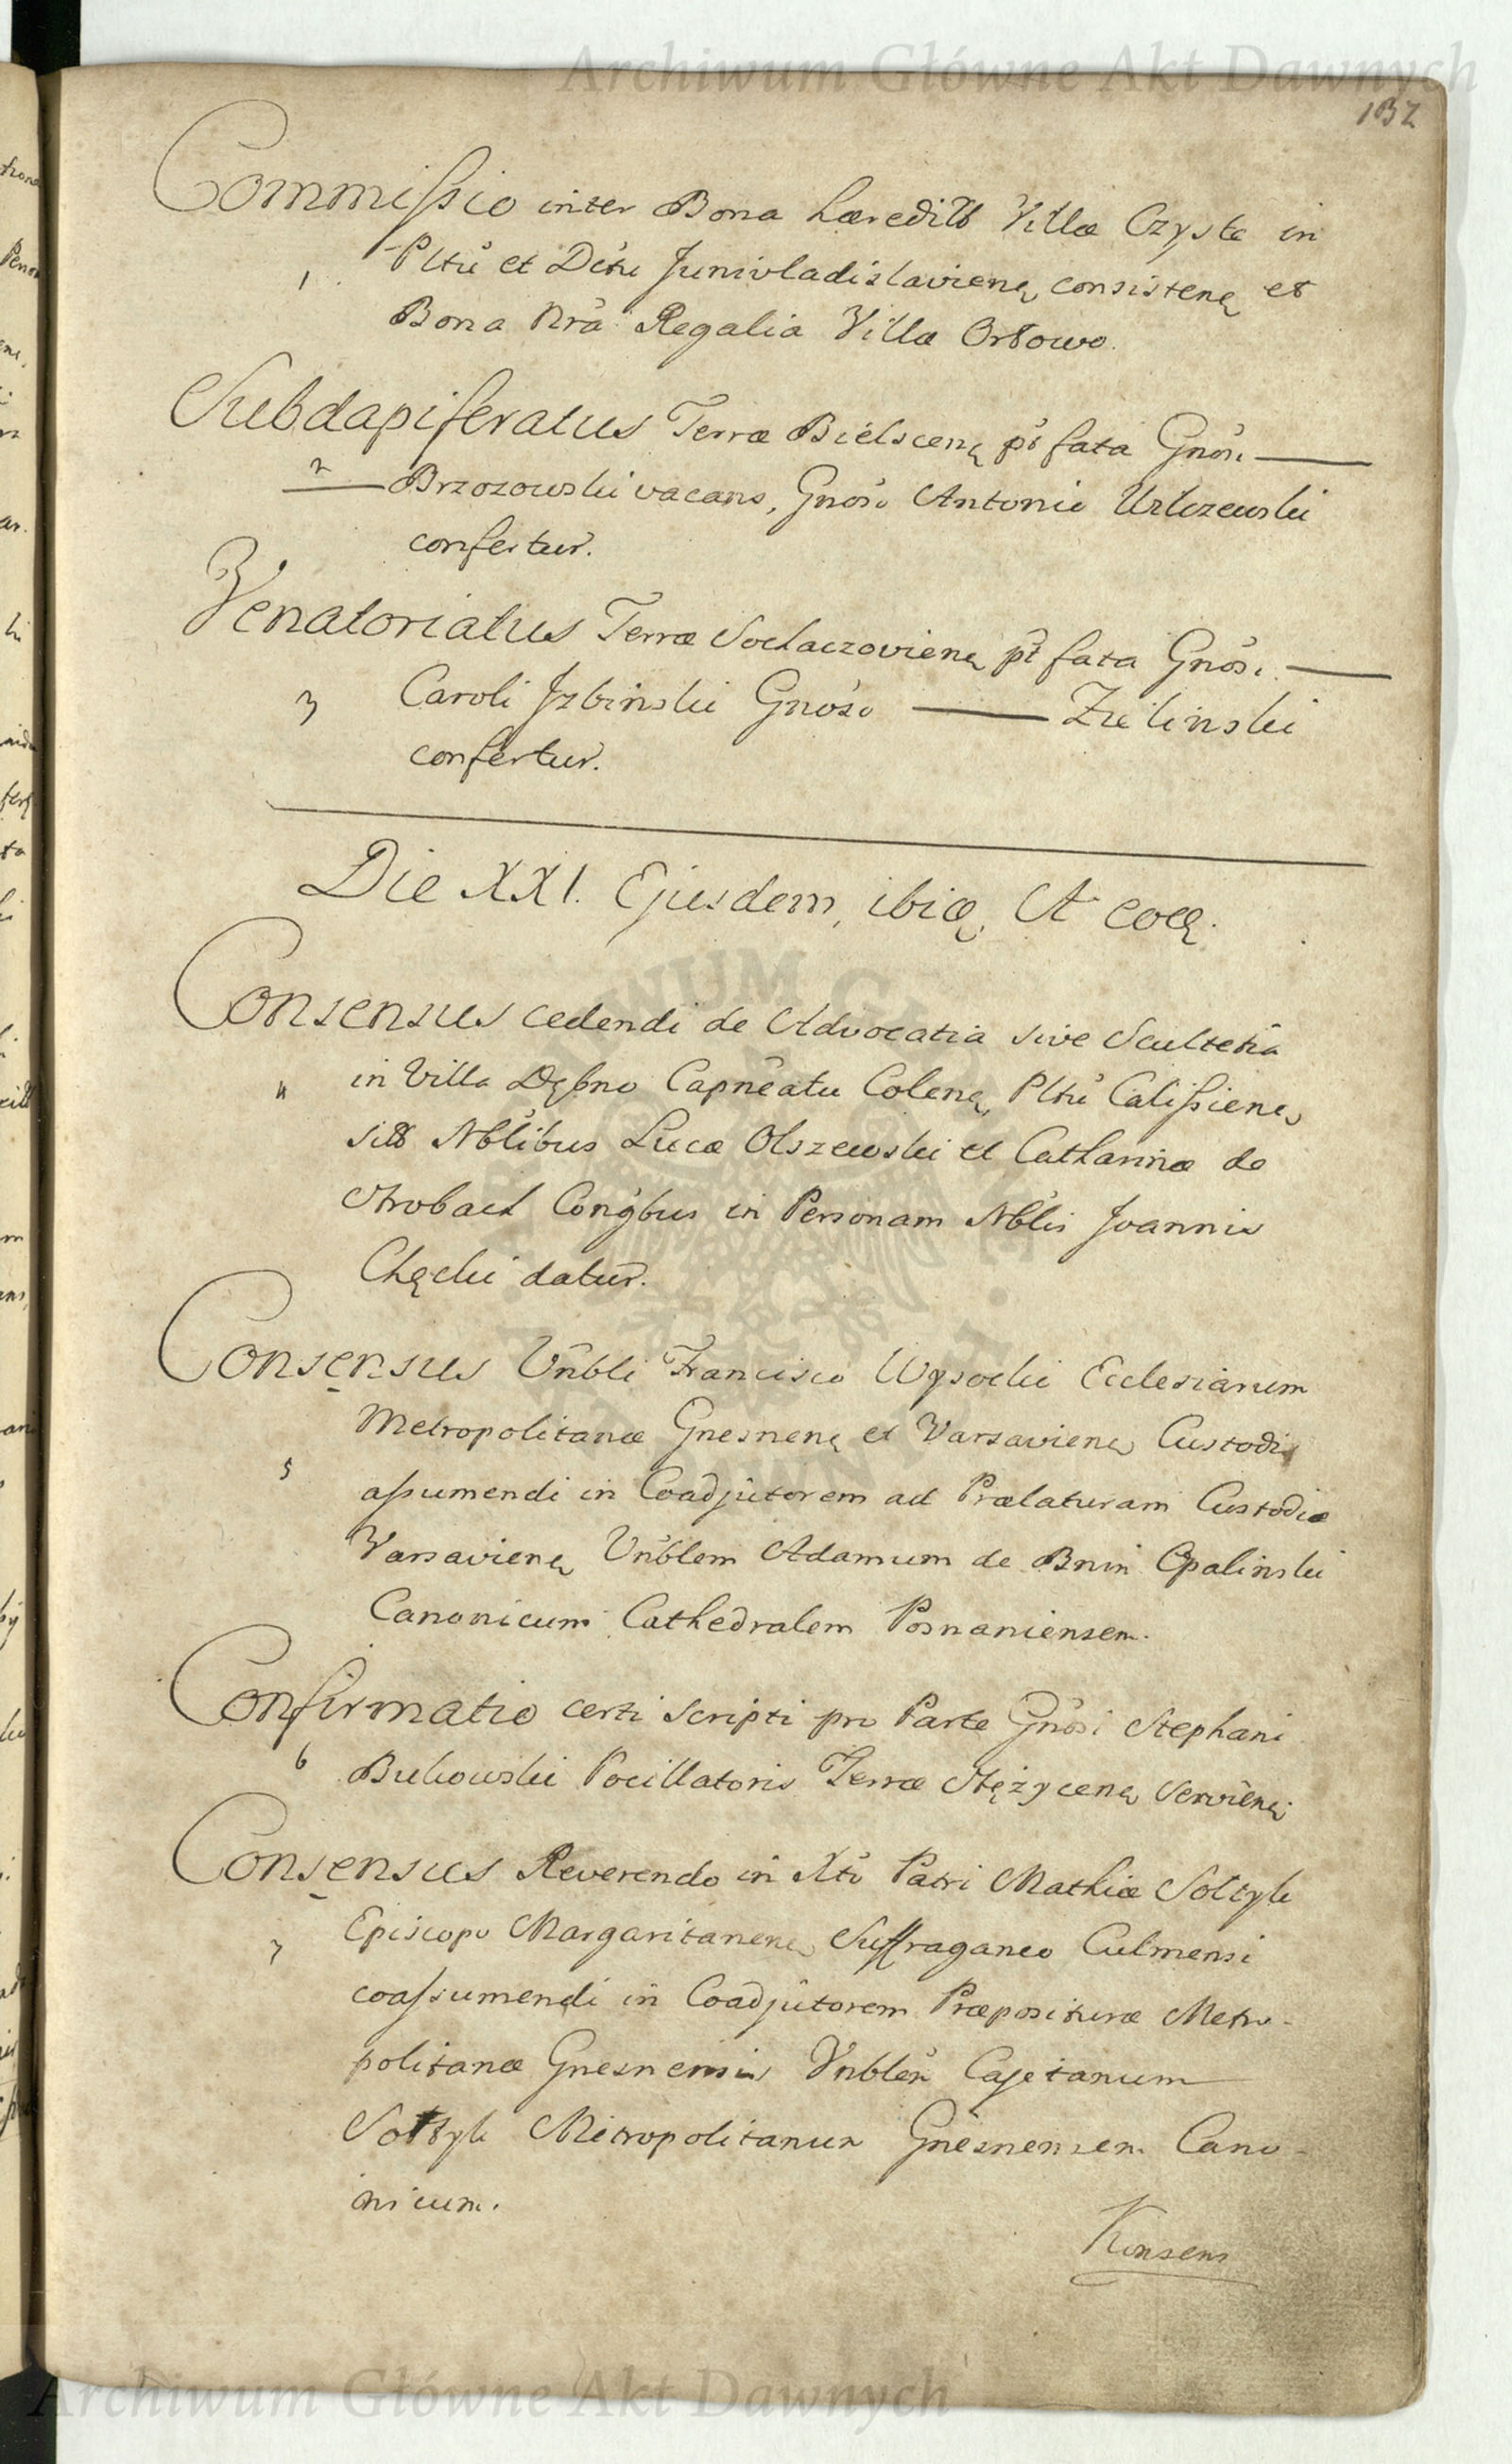 Archiwum Główne Akt Dawnych
132
Commissio inter Bona hæredith Villæ Czyste in
1. Pltu et Dctu Junivladislavienę consistenę et
Bona Nra Regalia Villæ Orłowo.
Subdapiferatus Terræ Bielscenę pt fata Gnosi ——
2 —— Brzozowski vacans, Gnoso Antonio
confertur.
Venatoriatus Terræ Sochaczovienę pt fata Gnosi. ——
3 Caroli Jzbinski Gnoso —— Zielinski
confertur.
Die XXI. Ejusdem, ibiq, A eoq.
Consensus cedendi de Advocatia sive Scultetia
4 in Villa Dębno Capneatu Colenę, Pltu Calissienę
Nblibus Lucæ Olszewski et Catharinæ de
Strobach Congbus in Personam Nblis Joannis
Chęcki datur.
Consensus Vnbli Francisco Wysocki Ecclesiarum
Metropolitanæ Gnesnenę et Varsavienę Custodi
5 assumendi in Coadjutorem ad Prælaturam Custodiæ
Varsavienę Vnblem Adamum de Bnin Opalinski
Canonicum Cathedralem Posnaniensem.
Confirmatio certi scripti pro Parte Gnosi Stephani
6 Bukowski Pocillatoris Terræ Stężycenę servienę
Consensus Reverendo in Xto Patri Mathiæ Soltyk
7 Episcopo Margaritanenę Suffraganeo Culmensi
coassumendi in Coadjutorem Præposituræ Metro-
politanæ Gnesnensis Vnblem Cajetanum
Sołtyk Metropolitanum Gnesnensem Cano-
nicum.
Konsens
Archiwum Główne Akt Dawnych